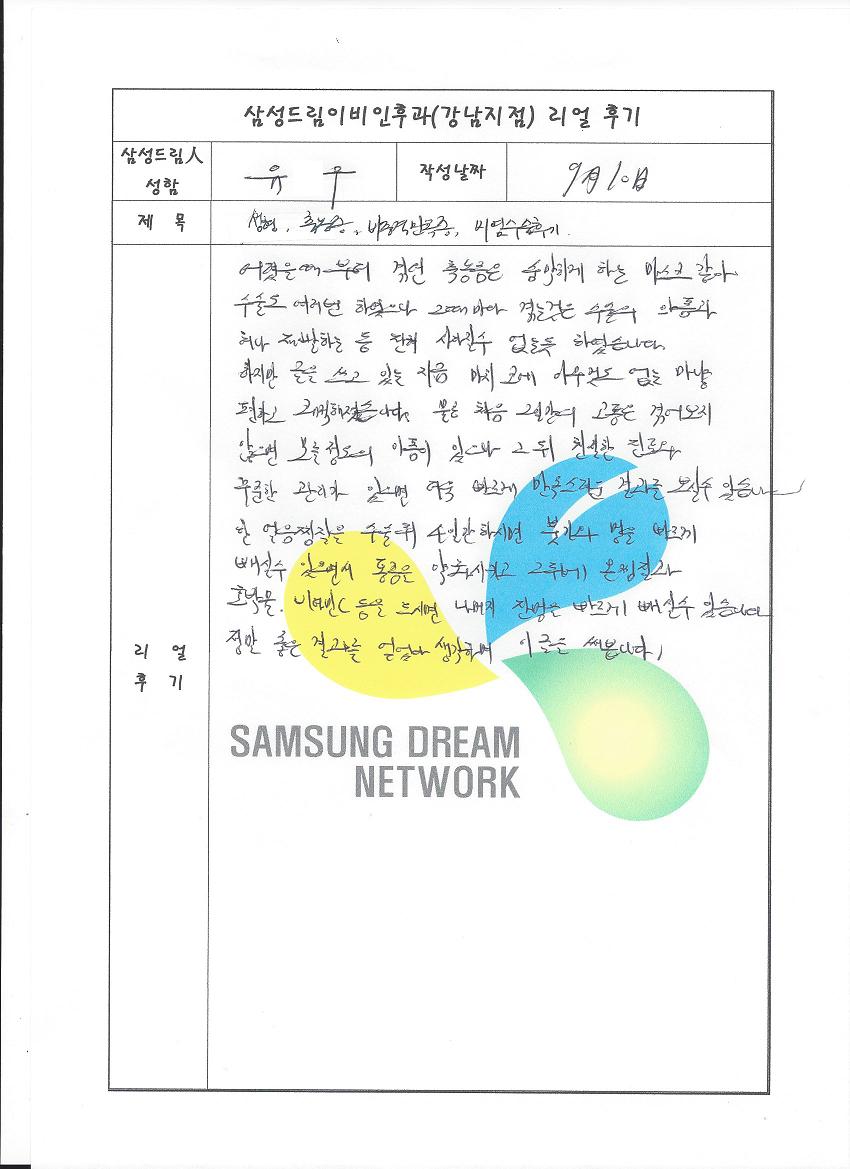 삼성드림이비인후과(강남지점) 리얼 후기
삼성드림人 성함
유 우
작성날짜
9月10日
제 목
성형, 축농증, 비중격만곡증, 비염수술후기.
어렸을때 부터 겪던 축농증은 숨막히게 하는 마스크 같아
수술도 여러번 하였으나 그때마다 겪는것은 수술의 아픔과
허나 재발하는 등 전혀 사라질수 없는듯 하였습니다.
하지만 글을 쓰고 있는 지금 마치 코에 아무것도 없는 마냥
편하고 쾌적해졌습니다. 물론 처음 그일간의 고통은 겪어보지
않으면 모를정도의 아픔이 있으나 그 뒤 친절한 진료와
꾸준한 관리가 있으면 더욱 빠르게 만족스러운 결과를 보실수 있습니다
또 얼음찜질을 수술뒤 4일간하시면 붓기와 멍을 빠르게
빼실수 있으면서 통증은 약화시키고 그후에 온찜질과
호박물, 비타민C 등을 드시면 나머지 잔멍은 빠르게 빼실수 있습니다
정말 좋은 결과를 얻었다 생각하며 이글을 써봅니다,
리 얼
후 기
SAMSUNG DREAM
NETWORK